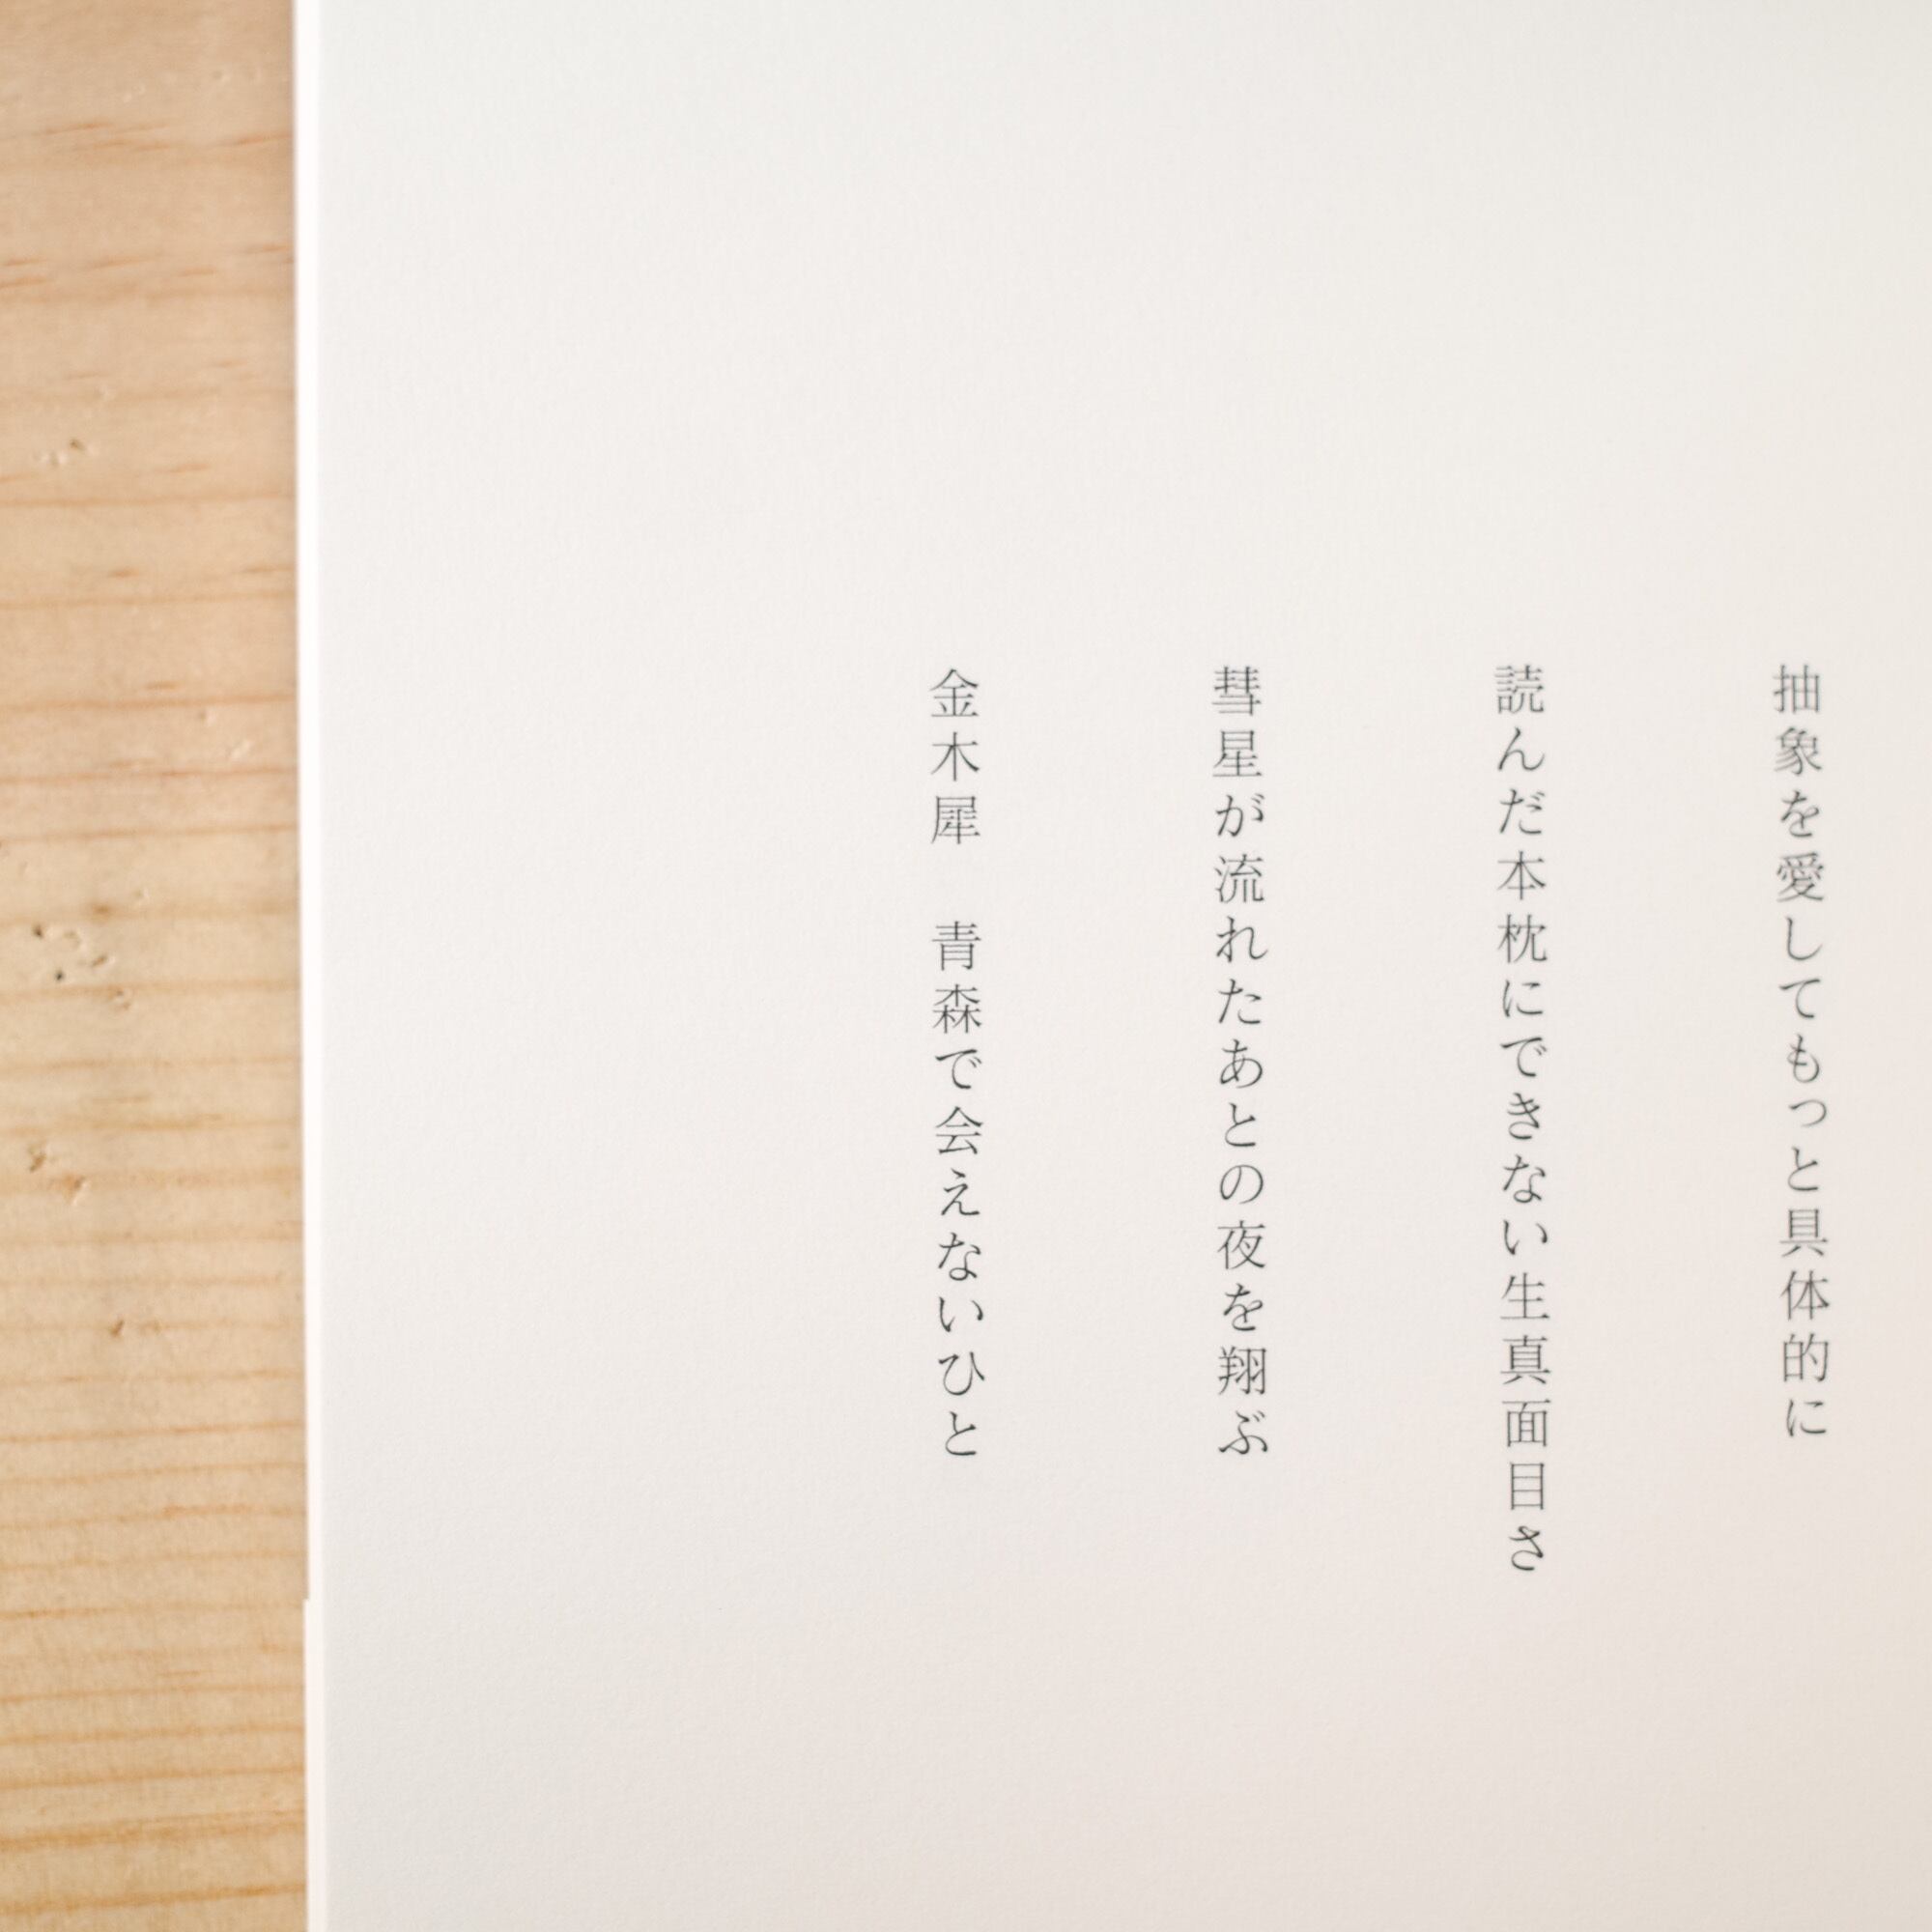 抽象を愛してもっと具体的に
読んだ本枕にできない生真面目さ
彗星が流れたあとの夜を翔ぶ
金木犀　青森で会えないひと